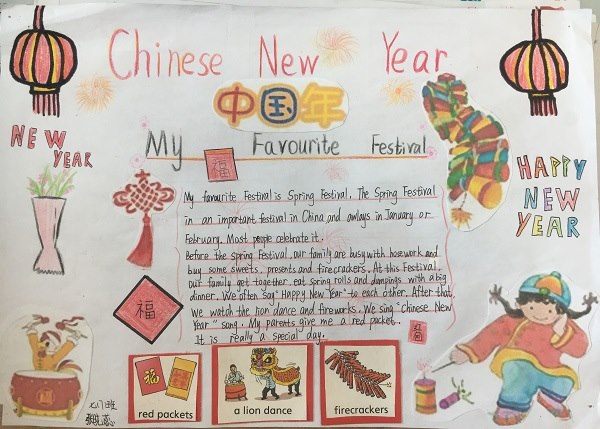 Chinese New Year
中国年
NEW
YEAR
My Favourite Festival
福
HAPPY
NEW
YEAR
My favourite Festival is Spring Festival. The Spring Festival
in an important festival in China and awlays in January or
February. Most people celebrate it.
Before the Spring Festival, our family are busy with hosework and
buy some sweets, presents and firecrackers. At this Festival,
our family get together, eat Spring rolls and dampings with a big
dinner. We often say "Happy New Year" to each other. After that,
we watch the lion dance and fireworks. We sing "Chinese New
Year" song. My parents give me a red packet.
It is really a special day.
福
福
福
red packets
a lion dance
firecrackers